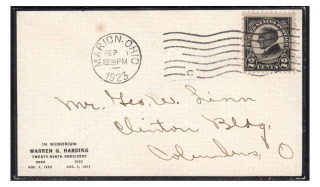 MARION, OHIO
SEP
12:30PM
1923
C
UNITED STATES POSTAGE
2 CENTS 2
Mr. Geo. W. Linn
Clinton Bldg.
Columbus, O
IN MEMORIAM
WARREN G. HARDING
TWENTY-NINTH PRESIDENT
BORN DIED
NOV. 2, 1865 AUG. 2, 1923